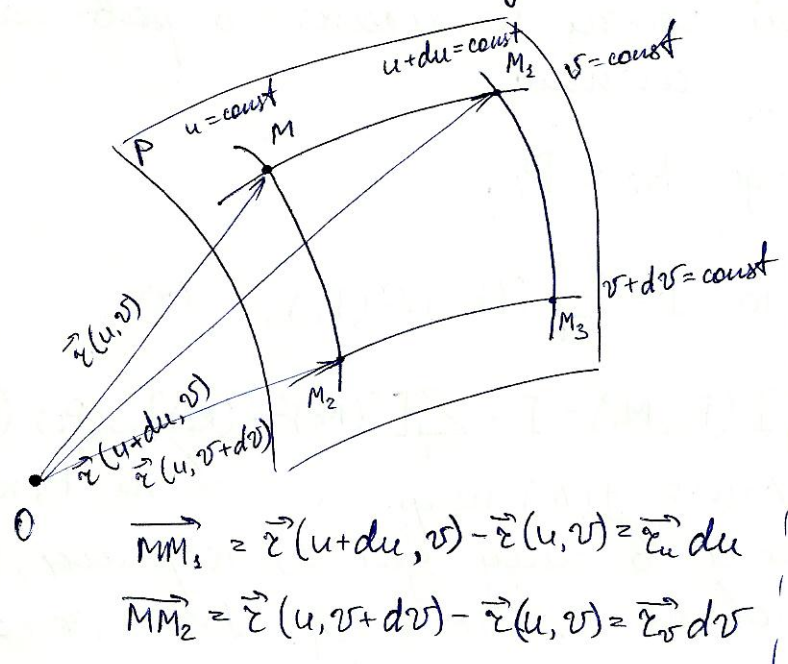 u+du=const
M₁
v=const
u=const
M
P
v+dv=const
M₃
r⃗(u,v)
M₂
r⃗(u+du,v)
r⃗(u,v+dv)
O
MM₁⃗ = r⃗(u+du,v)-r⃗(u,v)=r⃗ᵤdu
MM₂⃗ = r⃗(u,v+dv)-r⃗(u,v)=r⃗ᵥdv